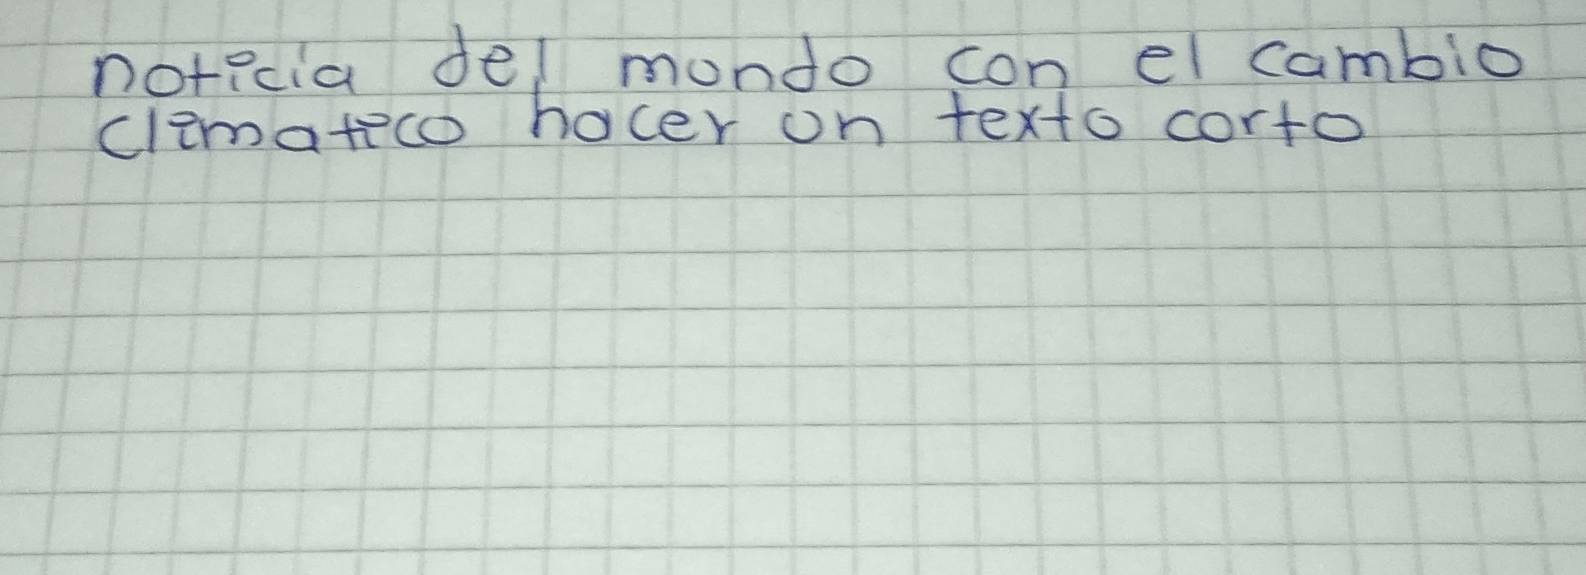 noticia del mundo con el cambio
climatico hacer un texto corto